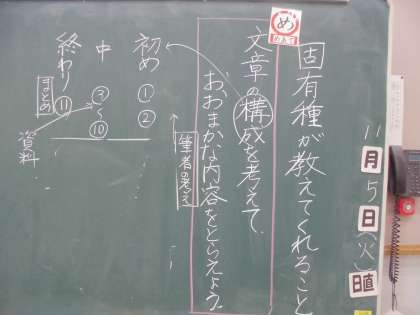 11月5日(火)
日直
固有種が教えてくれること
め
めあて
文章の構成を考えて、
おおまかな内容をとらえよう。
筆者の考え
初め ① ②
中 ③〜⑩
終わり ⑪
まとめ
資料